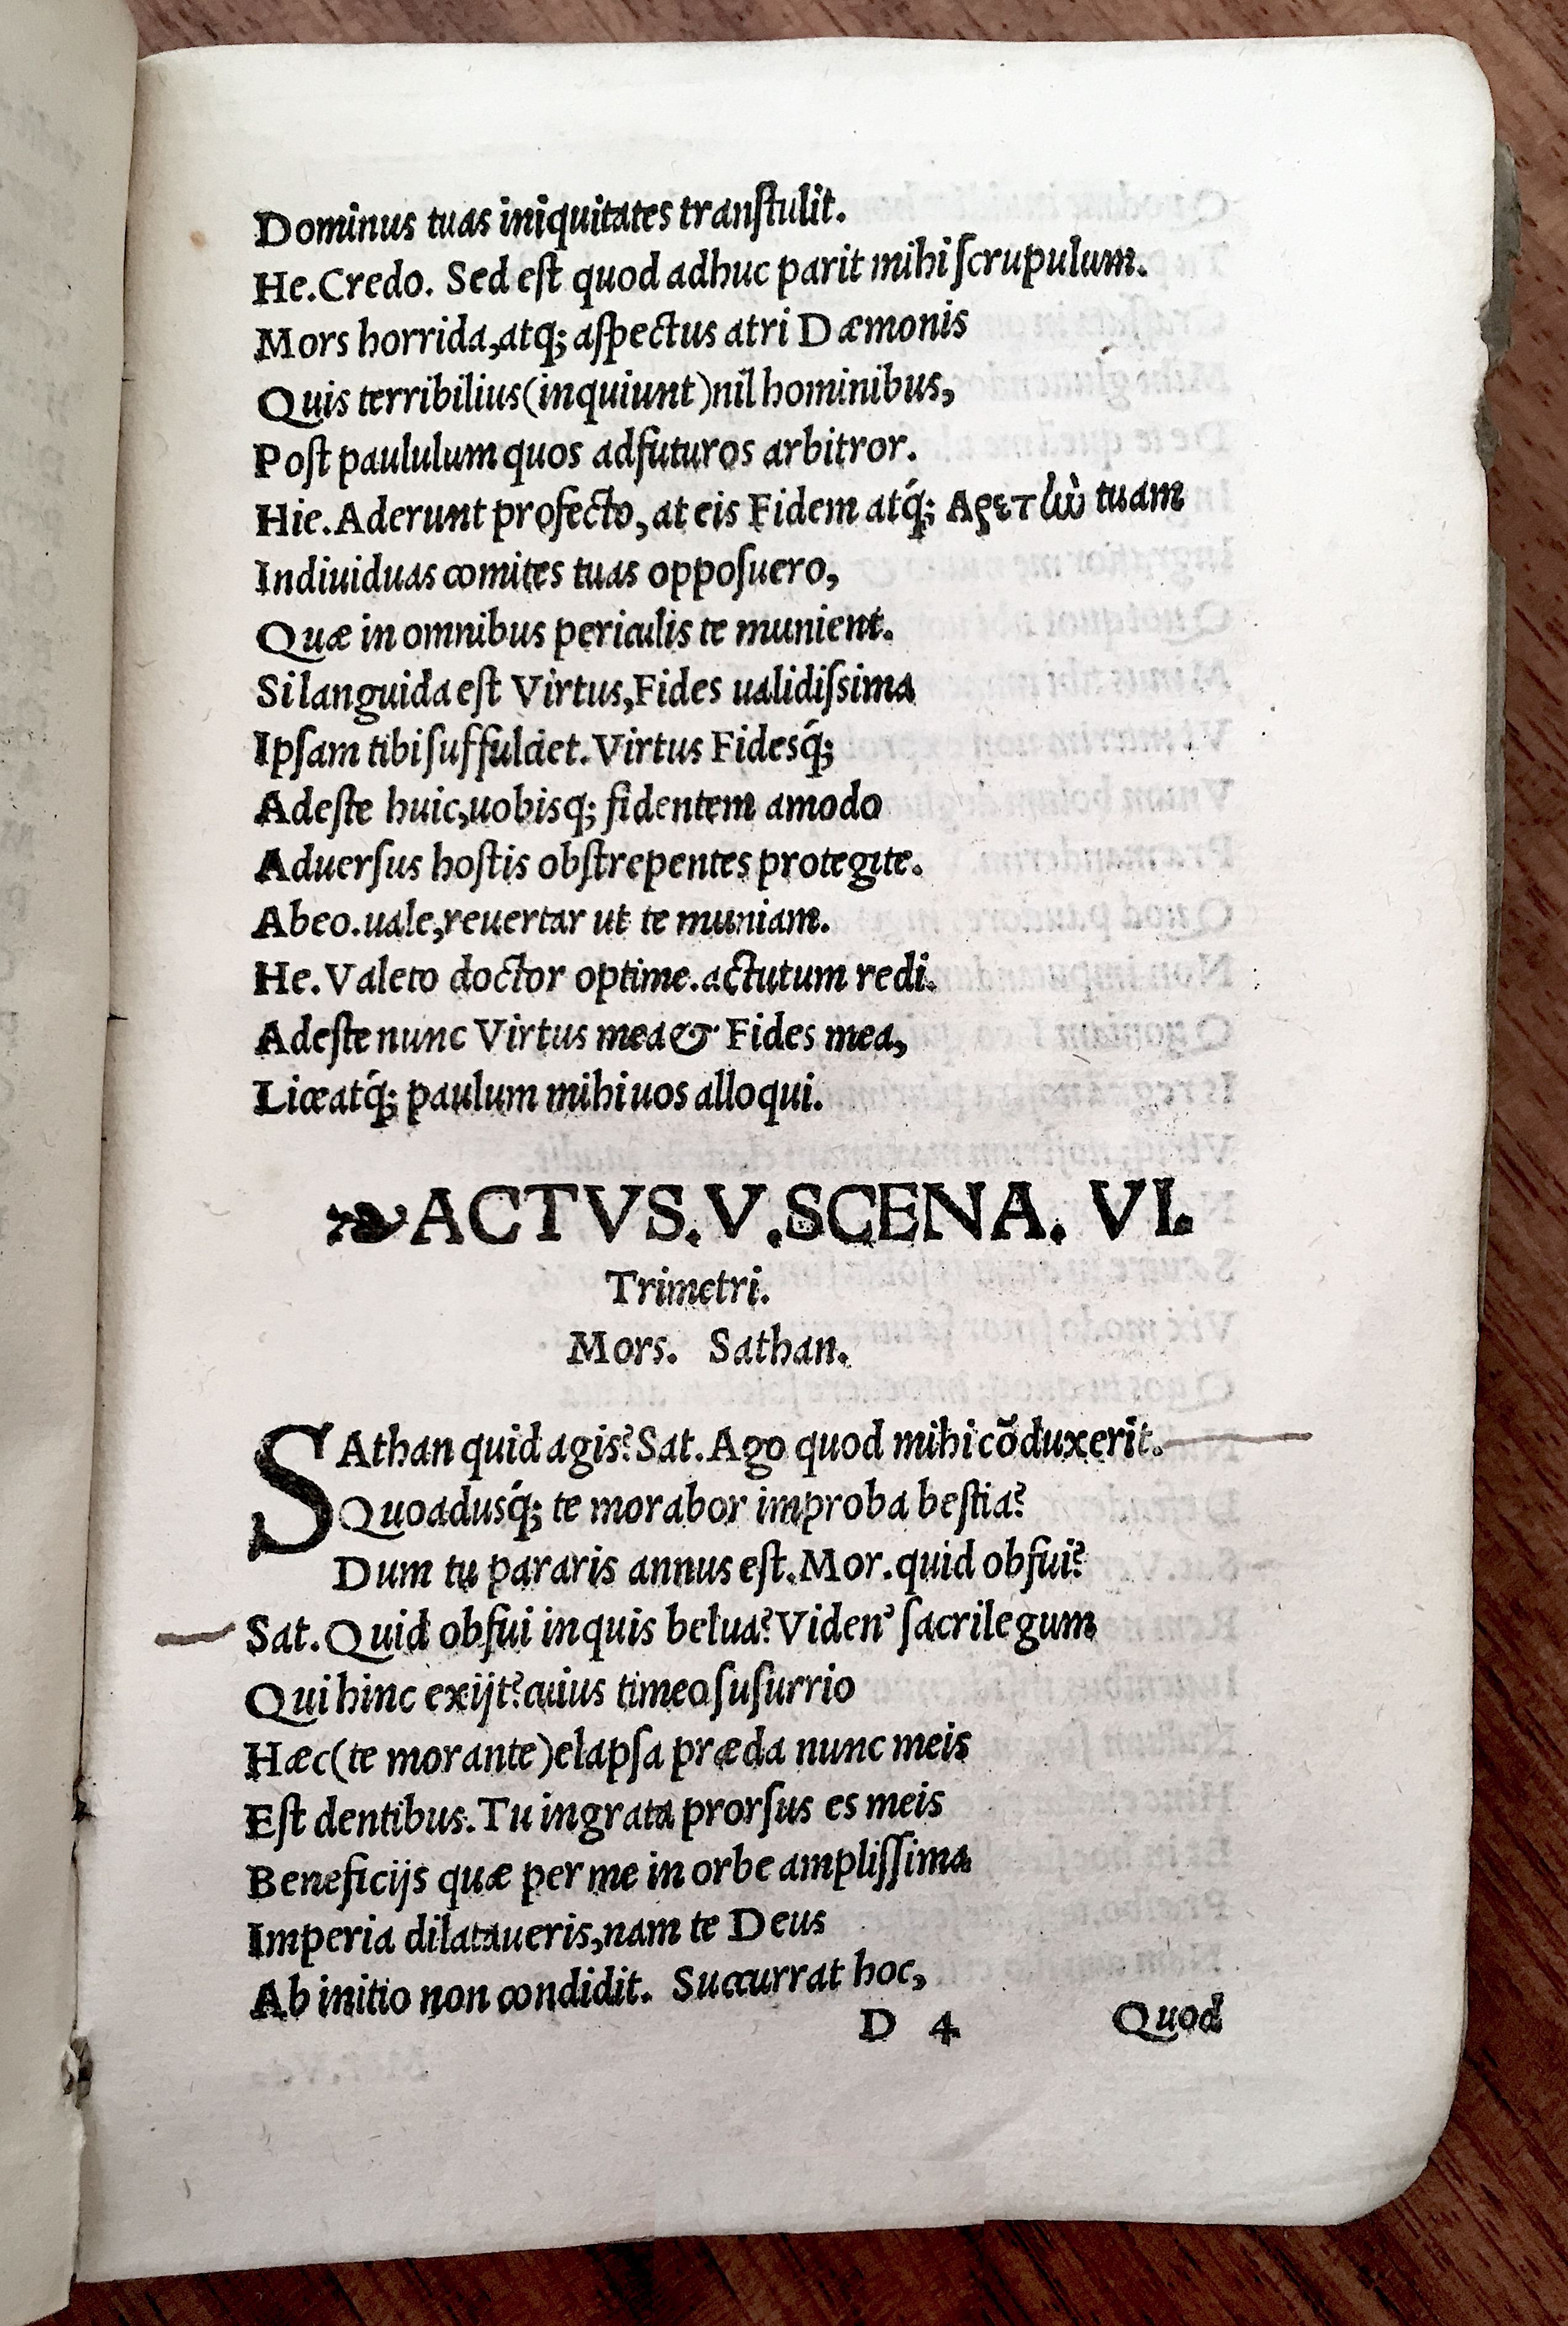 Dominus tuas iniquitates tranſtulit.
He. Credo. Sed eſt quod adhuc parit mihi ſcrupulum.
Mors horrida, atq́; aſpectus atri Dæmonis
Quis terribilius (inquiunt) nil hominibus,
Poſt paululum quos adfuturos arbitror.
Hie. Aderunt profecto, at eis Fidem atq́; Αρετὼ tuam
Indiuiduas comites tuas oppoſuero,
Quæ in omnibus periculis te munient.
Si languida eſt Virtus, Fides ualidiſsima
Ipſam tibi ſuffulciet. Virtus Fidesq́;
Adeſte huic, uobisq; fidentem amodo
Aduerſus hoſtis obſtrepentes protegite.
Abeo. uale, reuertar ut te muniam.
He. Valeto doctor optime. actutum redi.
Adeſte nunc Virtus mea & Fides mea,
Liceatq́; paulum mihi uos alloqui.
❧ACTVS. V. SCENA. VI.
Trimetri.
Mors. Sathan.
SAthan quid agis? Sat. Ago quod mihi cõduxerit.
Quoadusq́; te morabor improba beſtia?
Dum tu pararis annus eſt. Mor. quid obfui?
Sat. Quid obfui inquis belua? Viden’ ſacrilegum
Qui hinc exijt? cuius timeo ſuſurrio
Hæc (te morante) elapſa præda nunc meis
Eſt dentibus. Tu ingrata prorſus es meis
Beneficijs quæ per me in orbe ampliſſima
Imperia dilataueris, nam te Deus
Ab initio non condidit. Succurrat hoc,
D 4 Quod